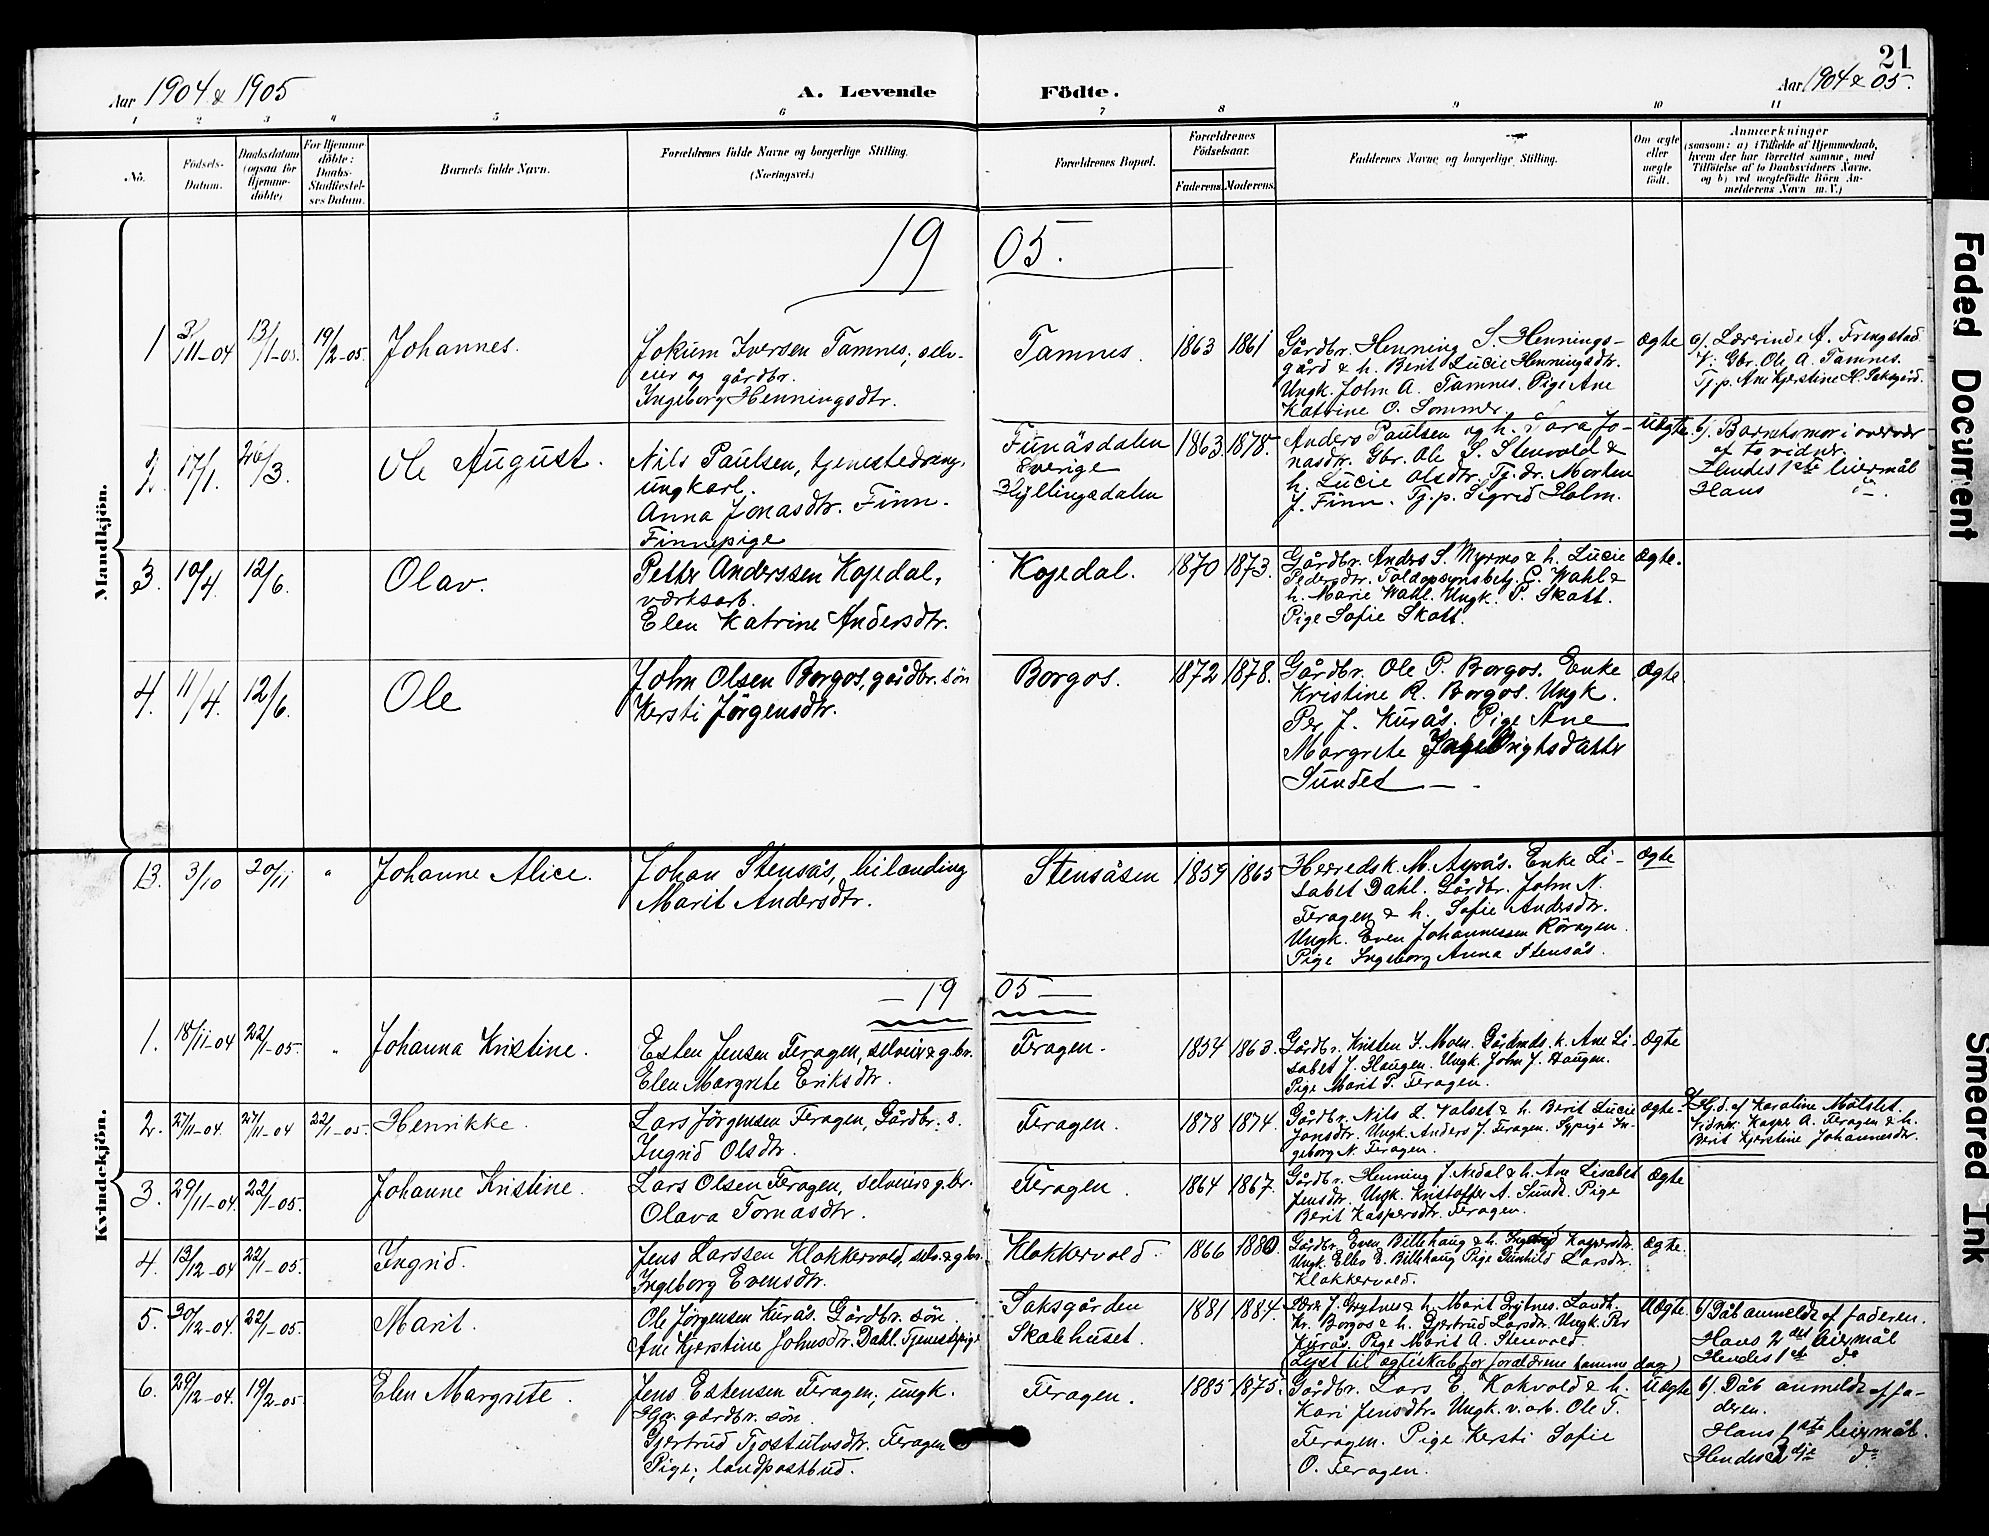 21
Aar 1904 & 1905
A. Levende
Födte.
Aar 1904 & 05.
1 2 3 4 5 6 7 8 9 10 11
No.
Födsels-
Datum.
Daabsdatum
(ogsaa for
Hjemme-
döbte)
For Hjemme-
döbte:
Daabs-
Stadfæstel-
ses Datum.
Barnets fulde Navn.
Forældrenes fulde Navne og borgerlige Stilling.
(Næringsvei.)
Forældrenes Bopæl.
Forældrenes
Födselsaar.
Faderens. Moderens.
Faddernes Navne og borgerlige Stilling.
Om ægte
eller
uægte
födt.
Anmærkninger
(saasom: a) i Tilfælde af Hjemmedaab,
hvem der har forrettet samme, med
Tilföielse af to Daabsvidners Navne,
og b) ved uægtefödte Börn An-
melderens Navn m. V.)
19 05.
Mandkjön.
1 3/11-04 13/1-05 19/2-05. Johannes.
Jokum Iversen Tamnes, selv-
eier og gårdbr.
Ingeborg Henningsdtr.
Tamnes. 1863 1861
Gårdbr. Henning S. Hennings-
gård & h. Berit Lucie Henningsdtr.
Ungk. John A. Tamnes. Pige Ane
Katrine O. Sommer.
Ægte
a/. Lærerinde A. Frengstad
V: Gbr. Ole A. Tamnes.
Tj.p. Ane Kjerstine H. Saksgård.
2. 17/1. 26/3. Ole August.
Nils Paulsen, tjenestedreng,
ungkarl.
Anna Jonasdtr. Finn.
Finnepige
Funäsdalen
Sverige
Hyllingsdalen
1863. 1878.
Anders Paulsen og h. Sara Jo-
nasdtr. Gbr. Ole S. Stenvold &
h. Lucie Olsdtr. Tj.dr. Morten
J. Finn. Tj.p. Sigrid Holm.
Uægte.
b/. Barnets mor i overvær
af to vidner.
Hendes 1ste leiermål
Hans
3. 10/4. 12/6. Olav.
Petter Anderssen Kojedal,
værksarb.
Elen Katrine Andersdtr.
Kojedal. 1870 1873.
Gårdbr. Anders S. Myrmo & h. Lucie
Pedersdtr. Toldopsynsbetj. C. Wahl &
h. Marie Wahl. Ungk. P. Skott.
Pige Sofie Skott.
Ægte.
4. 11/4. 12/6. Ole
John Olsen Borgos, gårdbr. sön
Kersti Jörgensdtr.
Borgos. 1872 1878.
Gårdbr. Ole P. Borgos. Enke
Kristine R. Borgos. Ungk.
Per J. Kurås. Pige Ane
Margrete Ingebrigtsdatter
Sundet
Ægte
Kvindekjön.
13. 3/10 20/11 " Johanne Alice.
Johan Stensås,
Marit Andersdtr.
Stensåsen 1859 1865
Herredsk. M. Aspås. Enke Li-
sabet Dahl. Gårdbr. John N.
Feragen & h. Sofie Andersdtr.
Ungk. Even Johannessen Röragen.
Pige Ingeborg Anna Stensås.
Ægte
19 05
1. 18/11-04 22/1-05. " Johanna Kristine.
Esten Jensen Feragen, selveier & g.br.
Elen Margrete Eriksdtr.
Feragen. 1854 1863.
Gårdbr. Kristen J. Moen. Gårdmds. k. Ane Li-
sabet J. Haugen. Ungk. John J. Haugen.
Pige Marit P. Feragen.
Ægte
2. 27/11-04. 27/11-04 22/1-05. Henrikke.
Lars Jörgensen Feragen, Gårdbr. s.
Ingrid Olsdtr.
Feragen. 1878 1874.
Gårdbr. Nils L. Valset & h. Berit Lucie
Jonsdtr. Ungk. Anders J. Feragen. Sypige In-
geborg N. Feragen.
Ægte.
a/ Hj.d. af Karoline Målstet.
Vidner Kasper A. Feragen & h.
Berit Kjerstine Johannesdtr.
3. 29/11-04. 22/1-05. Johanne Kristine.
Lars Olsen Feragen, selveier & g.br.
Olava Tomasdtr.
Feragen. 1864 1867.
Gårdbr. Henning J. Nedal & h. Ane Lisabet
Jensdtr. Ungk. Kristoffer A. Sundt. Pige
Berit Kaspersdtr. Feragen.
Ægte
4. 13/12-04 22/1-05. Ingrid.
Jens Larssen Klokkervold, selv. & g.br.
Ingeborg Evensdtr.
Klokkervold. 1866 1880.
Gårdbr. Even Billehaug & h. Ingebrd Kaspersdtr.
Ungk. Elles E. Billehaug Pige Gunhild Larsdtr.
Klokkervold.
Ægte.
5. 20/12-04. 22/1-05. Marit.
Ole Jörgensen Kurås. Gårdbr. sön.
Ane Kjerstine Johnsdtr. Dahl. Tjenestepige
Saksgården
Skolehuset.
1881 1884.
Lærer J. Grytnes & h. Marit Grytnes. Landh.
Kr. Borgos & h. Gjertrud Larsdtr. Ungk. Per
Kurås. Pige Marit A. Stenvold.
(Lyst til ægteskab for forældrene samme dag)
Uægte.
b/ Dåb anmeldt af faderen.
Hans 2det leiermål
Hendes 1ste do
6. 29/12-04. 19/2-05 Elen Margrete.
Jens Estensen Feragen; ungk.
gårdbr. sön.
Gjertrud Tjostulvsdtr. Feragen
Pige; landpostbud.
Feragen. 1885 1875.
Gårdbr. Lars E. Kokvold & h.
Kari Jensdtr. Ungk. v. arb. Ole T.
Feragen. Pige Kersti Sofie
O. Feragen.
Uægte
b/. Dåb anmeldt af fa-
deren.
Hans 1ste leiermål.
Hendes 3dje do
Faded Document
Smeared Ink